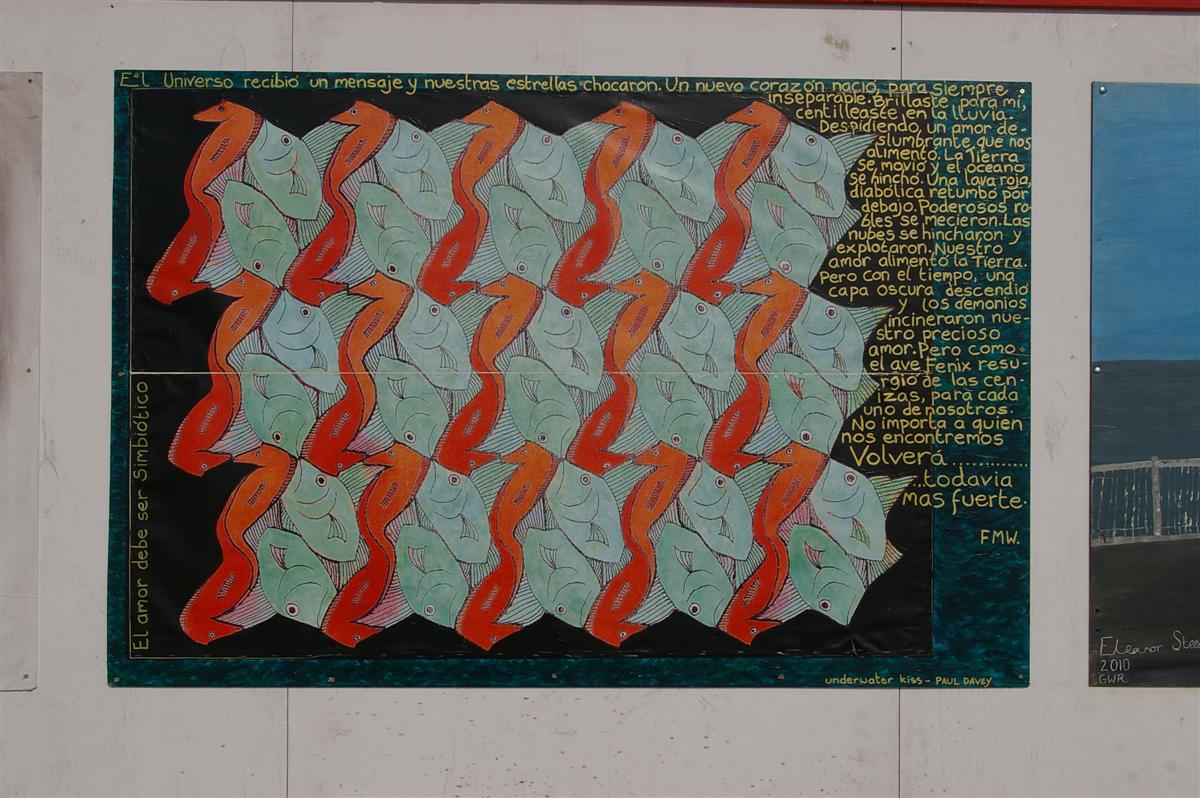 El Universo recibió un mensaje y nuestras estrellas chocaron. Un nuevo corazón nació, para siempre
inseparable. Brillaste para mí,
centilleaste en la lluvia.
Despidiendo un amor de-
slumbrante que nos
alimentó. La Tierra
se movió y el oceano
se hinchó. Una lava roja,
diabólica retumbó por
debajo. Poderosos ro-
bles se mecieron. Las
nubes se hincharon y
explotaron. Nuestro
amor alimentó la Tierra.
Pero con el tiempo, una
capa oscura descendió
y los demonios
incineraron nue-
stro precioso
amor. Pero como
el ave Fenix resu-
rgió de las cen-
izas, para cada
uno de nosotros.
No importa a quien
nos encontremos
Volverá............
...todavia
mas fuerte.
FMW.
El amor debe ser Simbiótico
underwater kiss - PAUL DAVEY
Eleanor
2010
GWR